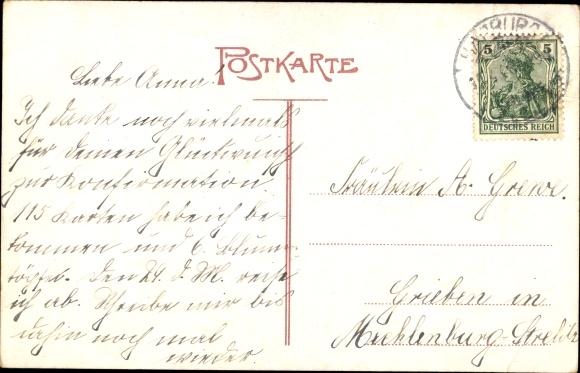 POSTKARTE
Liebe Anna!
Ich danke noch vielmals
für deinen Glückwunsch
zur Konfirmation.
115 Karten habe ich be-
kommen und 6 Blumen-
töpfe. Den 24. d. M. reise
ich ab. Schreibe mir bis
dahin noch mal
wieder.
5 5
DEUTSCHES REICH
Fräulein A. Grewe.
Grieben in
Mecklenburg-Strelitz